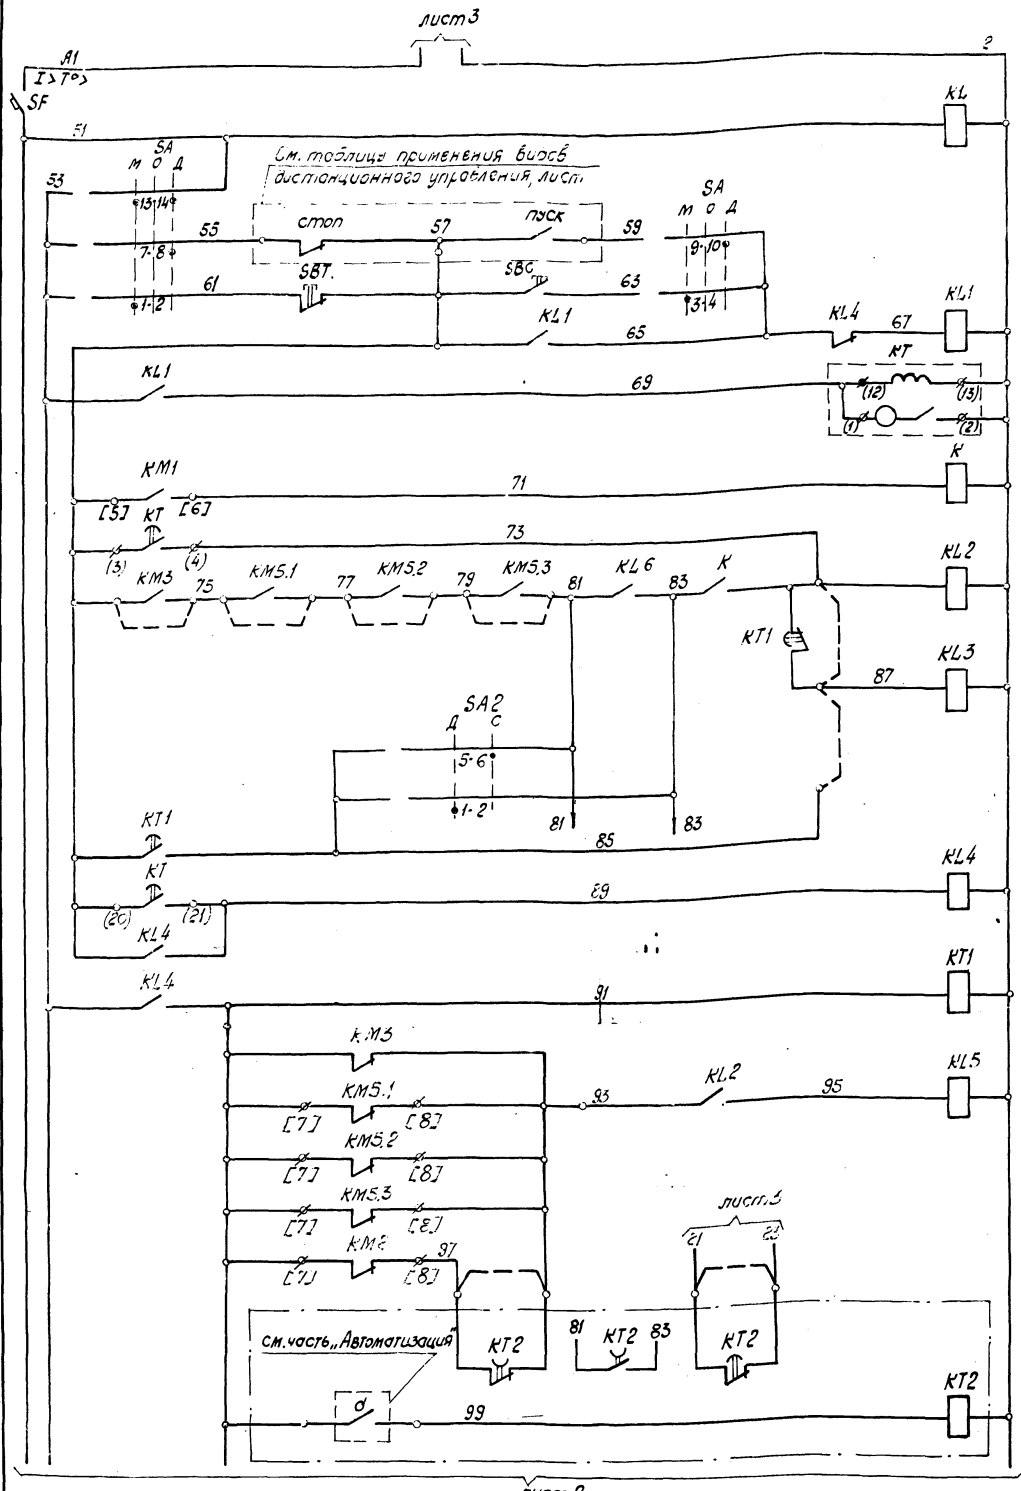 лист 3
А1
2
I> T°>
SF
KL
51
SA
М О Д
См. таблицы применения видов
дистанционного управления, лист.
53
13 14
SA
М О Д
55
СТОП
57
ПУСК
59
7 8
9 10
61
SBT
SBC
63
1 2
3 4
KL1
65
KL4
67
KL1
KT
KL1
69
(12)
(13)
(1)
(2)
KM1
71
K
[5]
[6]
KT
73
KL2
(3)
(4)
KM3
75
KM5.1
77
KM5.2
79
KM5.3
81
KL6
83
K
KT1
KL3
87
SA2
Д С
5-6
1-2
81
83
KT1
85
KL4
KT
89
(20)
(21)
KL4
KL4
91
KT1
KM3
KL5
KM5.1
93
KL2
95
[7]
[8]
KM5.2
[7]
[8]
KM5.3
[7]
[8]
лист 3
21
23
KM2
97
[7]
[8]
См. часть „Автоматизация"
KT2
81
KT2
83
KT2
KT2
d
99